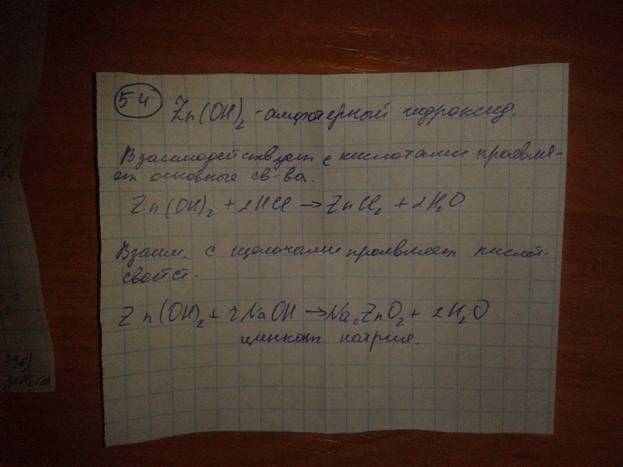 54
Zn(OH)₂ - амфотерный гидроксид.
Взаимодействует с кислотами проявля-
ет основные св-ва.
Zn(OH)₂ + 2HCl → ZnCl₂ + 2H₂O
Взаим. с щелочами проявляет кислот.
свойст.
Zn(OH)₂ + 2NaOH → Na₂ZnO₂ + 2H₂O
цинкат натрия.